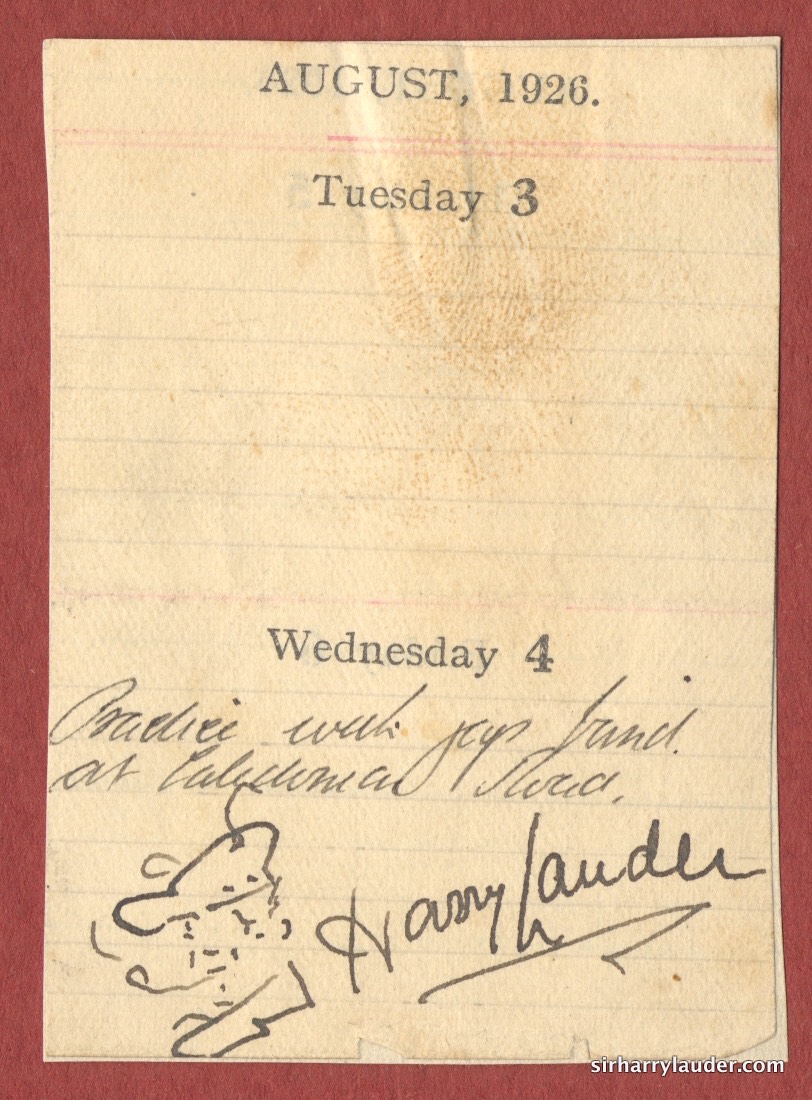 AUGUST, 1926.
Tuesday 3
Wednesday 4
Practice with band.
at Caledonian Road.
Harry Lauder
sirharrylauder.com